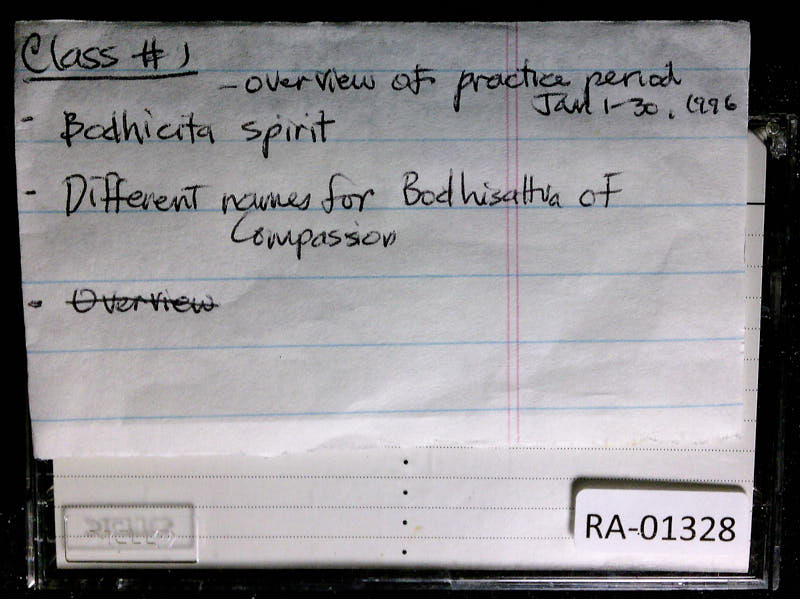 Class #1
- overview of practice period
Jan 1-30, 1996
- Bodhicita spirit
- Different names for Bodhisattva of
Compassion
- Overview
RA-01328